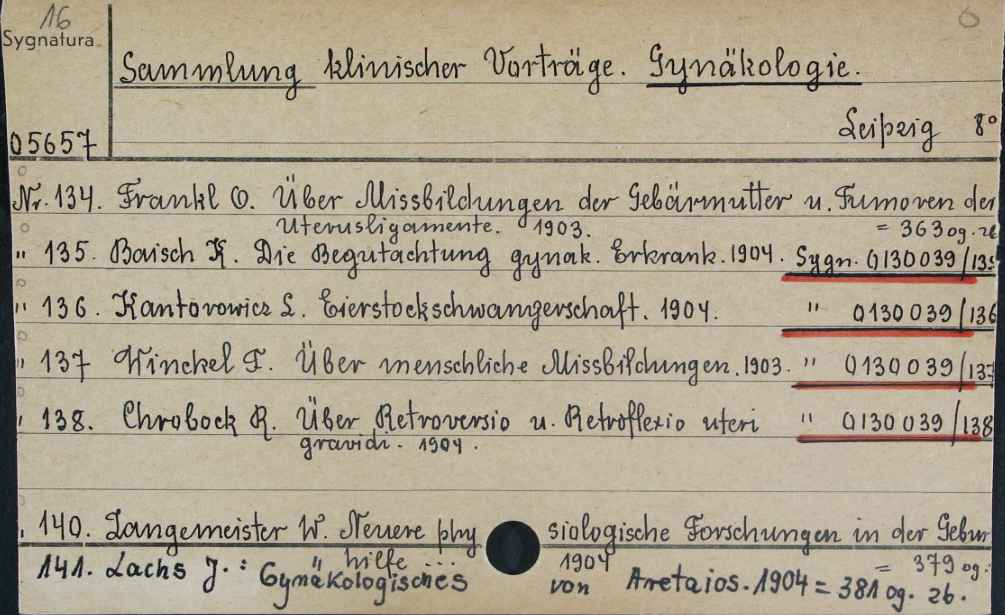 16
6
Sygnatura
Sammlung klinischer Vorträge. Gynäkologie.
05657
Leipzig 8°
Nr. 134. Frankl O. Über Missbildungen der Gebärmutter u. Tumoren der
Uterusligamente. 1903. = 363 og. zb
" 135. Baisch K. Die Begutachtung gynäk. Erkrank. 1904. Sygn. 0130039/135
" 136. Kantorowicz L. Eierstockschwangerschaft. 1904. " 0130039/136
" 137 Winckel F. Über menschliche Missbildungen. 1903. " 0130039/137
" 138. Chrobock R. Über Retroversio u. Retroflexio uteri " 0130039/138
gravidi. 1904.
" 140. Zangemeister W. Neuere physiologische Forschungen in der Gebur
hilfe ... 1904 = 379 og.
141. Lachs J.: Gynäkologisches von Aretaios. 1904 = 381 og. zb.